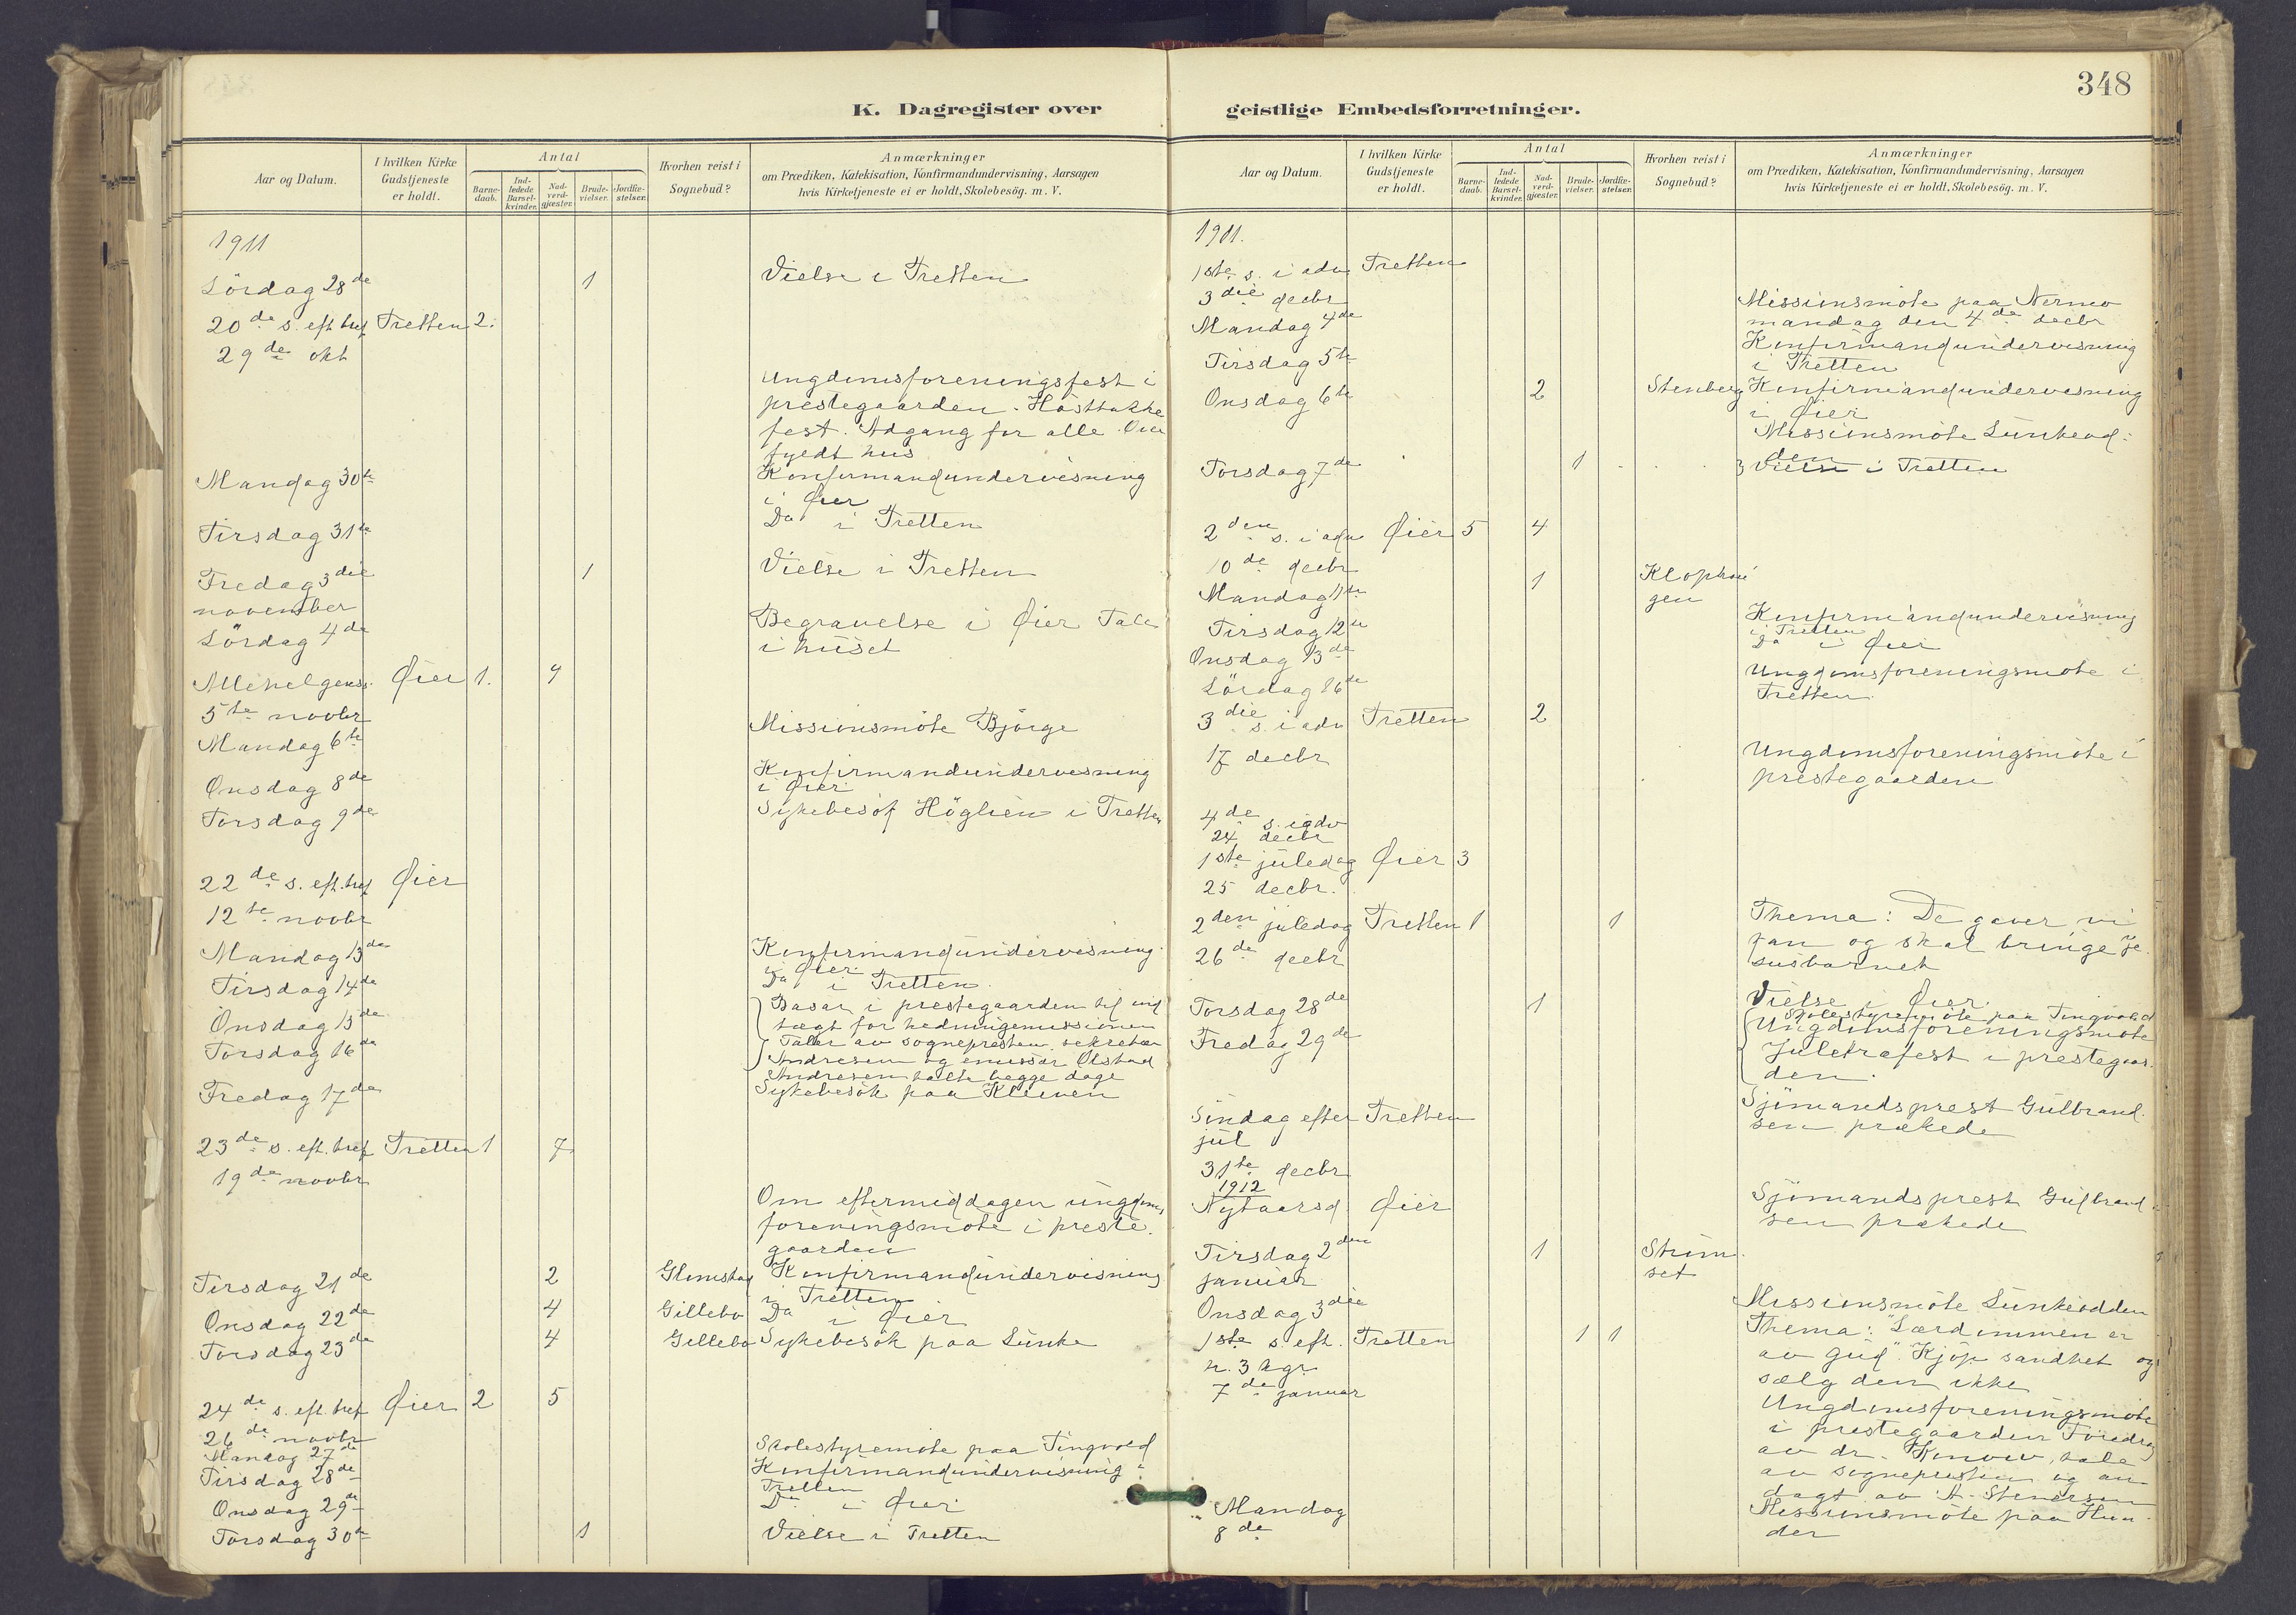 348
K. Dagregister over geistlige Embedsforretninger.
Aar og Datum.
I hvilken Kirke Gudstjeneste er holdt.
Antal
Barne-daab.
Ind-ledede Barsel-kvinder.
Nad-verd-gjæster.
Brude-vielser.
Jordfæ-stelser.
Hvorhen reist i Sognebud?
Anmærkninger
om Prædiken, Katekisation, Konfirmandundervisning, Aarsagen
hvis Kirketjeneste ei er holdt, Skolebesög. m. V.
1911
Lördag 28de 1 Vielse i Tretten
20de s. eft. tref Tretten 2.
29de okt
Ungdomsforeningsfest i
prestegaarden. Hösttakke
fest. Adgang for alle. Over
fyldt hus
Mandag 30te Konfirmandundervisning
i Øier
Tirsdag 31te Do i Tretten
Fredag 3die 1 Vielse i Tretten
november
Lördag 4de Begravelse i Øier Tale
i huset
Allehelgenss. Øier 1. 4
5te novbr
Mandag 6te Missionsmöte Björge
Onsdag 8de Konfirmandundervisning
i Øier
Torsdag 9de Sykebesök Höglien i Tretten
22de s. eft. tref Øier
12te novbr
Mandag 13de Konfirmandundervisning
i Øier
Tirsdag 14de Do i Tretten.
Onsdag 15de Basar i prestegaarden til ind
tægt for hedningemissionen
Torsdag 16de Taler av sognepresten, sekretær
Andresen og emissær Olstad
Andresen talte begge dage
Fredag 17de Sykebesök paa Kleiven
23de s. eft. tref Tretten 1 7
19de novbr
Om eftermiddagen ungdoms
foreningsmöte i preste.
gaarden
Tirsdag 21de 2 Glomstad Konfirmandundervisning
i Tretten
Onsdag 22de 4 Gillebo Do i Øier
Torsdag 23de 4 Gillebo Sykebesök paa Lunke
24de s. eft. tref Øier 2 5
26de novbr
Mandag 27de Skolestyremöte paa Tingvold
Tirsdag 28de Konfirmandundervisning i
Tretten
Onsdag 29de Do i Øier
Torsdag 30te 1 Vielse i Tretten
Aar og Datum.
I hvilken Kirke Gudstjeneste er holdt.
Antal
Barne-daab.
Ind-ledede Barsel-kvinder.
Nad-verd-gjæster.
Brude-vielser.
Jordfæ-stelser.
Hvorhen reist i Sognebud?
Anmærkninger
om Prædiken, Katekisation, Konfirmandundervisning, Aarsagen
hvis Kirketjeneste ei er holdt, Skolebesög. m. V.
1911.
1ste s. i adv Tretten
3die decbr Missionsmöte paa Nermo
Mandag 4de mandag den 4de decbr
Tirsdag 5te Konfirmandundervisning
i Tretten
Onsdag 6te 2 Stenberg Konfirmandundervisning
i Øier
Missionsmöte Lunkeod-
den
Torsdag 7de 1 Vielse i Tretten
2den s. i adv Øier 5 4
10de decbr
Mandag 11te 1 Klophau
gen
Tirsdag 12te Konfirmandundervisning
i Tretten
Onsdag 13de Do i Øier
Lördag 16de Ungdomsforeningsmöte i
Tretten.
3die s. i adv Tretten 2
17 decbr Ungdomsforeningsmöte i
prestegaarden
4de s. i adv
24 decbr
1ste juledag Øier 3
25 decbr.
2den juledag Tretten 1 1 Thema: De gaver vi
26de decbr kan og skal bringe Je.
susbarnet
Torsdag 28de 1 Vielse i Øier.
Skolestyremöte paa Tingvold
Fredag 29de Ungdomsforeningsmöte
Juletræfest i prestegaar.
den.
Söndag efter Tretten Sjömandsprest Gulbrand.
jul sen prækede
31te decbr
1912
Nytaarsd. Øier Sjömandsprest Gulbrand
sen prækede
Tirsdag 2den 1 Ström.
januar set
Onsdag 3die Missionsmöte Lunkeodden
1ste s. eft. Tretten 1 1 Thema: "Lærdommen er
h. 3 kgr. av Gud". Kjöp sandhet og
7de januar sælg den ikke
Ungdomsforeningsmöte
i prestegaarden Foredrag
av dr. Know, tale
av sognepresten og an
dagt av A. Stenersen
Mandag Missionsmöte paa Hun
8de der